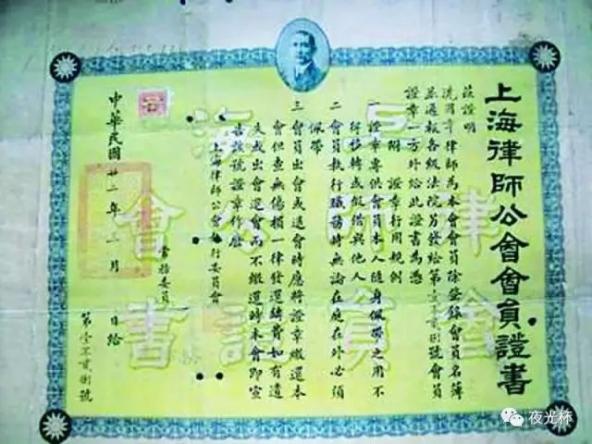 上海律師公會會員證書
茲證明
律師為本會會員除登錄會員名簿
並通報各級法院另發給第壹零貳捌號會員
證章一方外給此證書為憑
附證章行用規例
一證章專供會員本人隨身佩帶之用不
得移轉或假借與他人
二會員執行職務時無論在庭在外必須
佩帶
三會員出會或退會時應將證章繳還本
會但查無傷損一律發還鑄費如有遺
失或出會退會而不繳還時本會即宣
告該號證章作廢
上海律師公會執行委員會
常務委員
中華民國廿二年三月 日給
第壹零貳捌號
上海律師公會會員證書
夜光杯